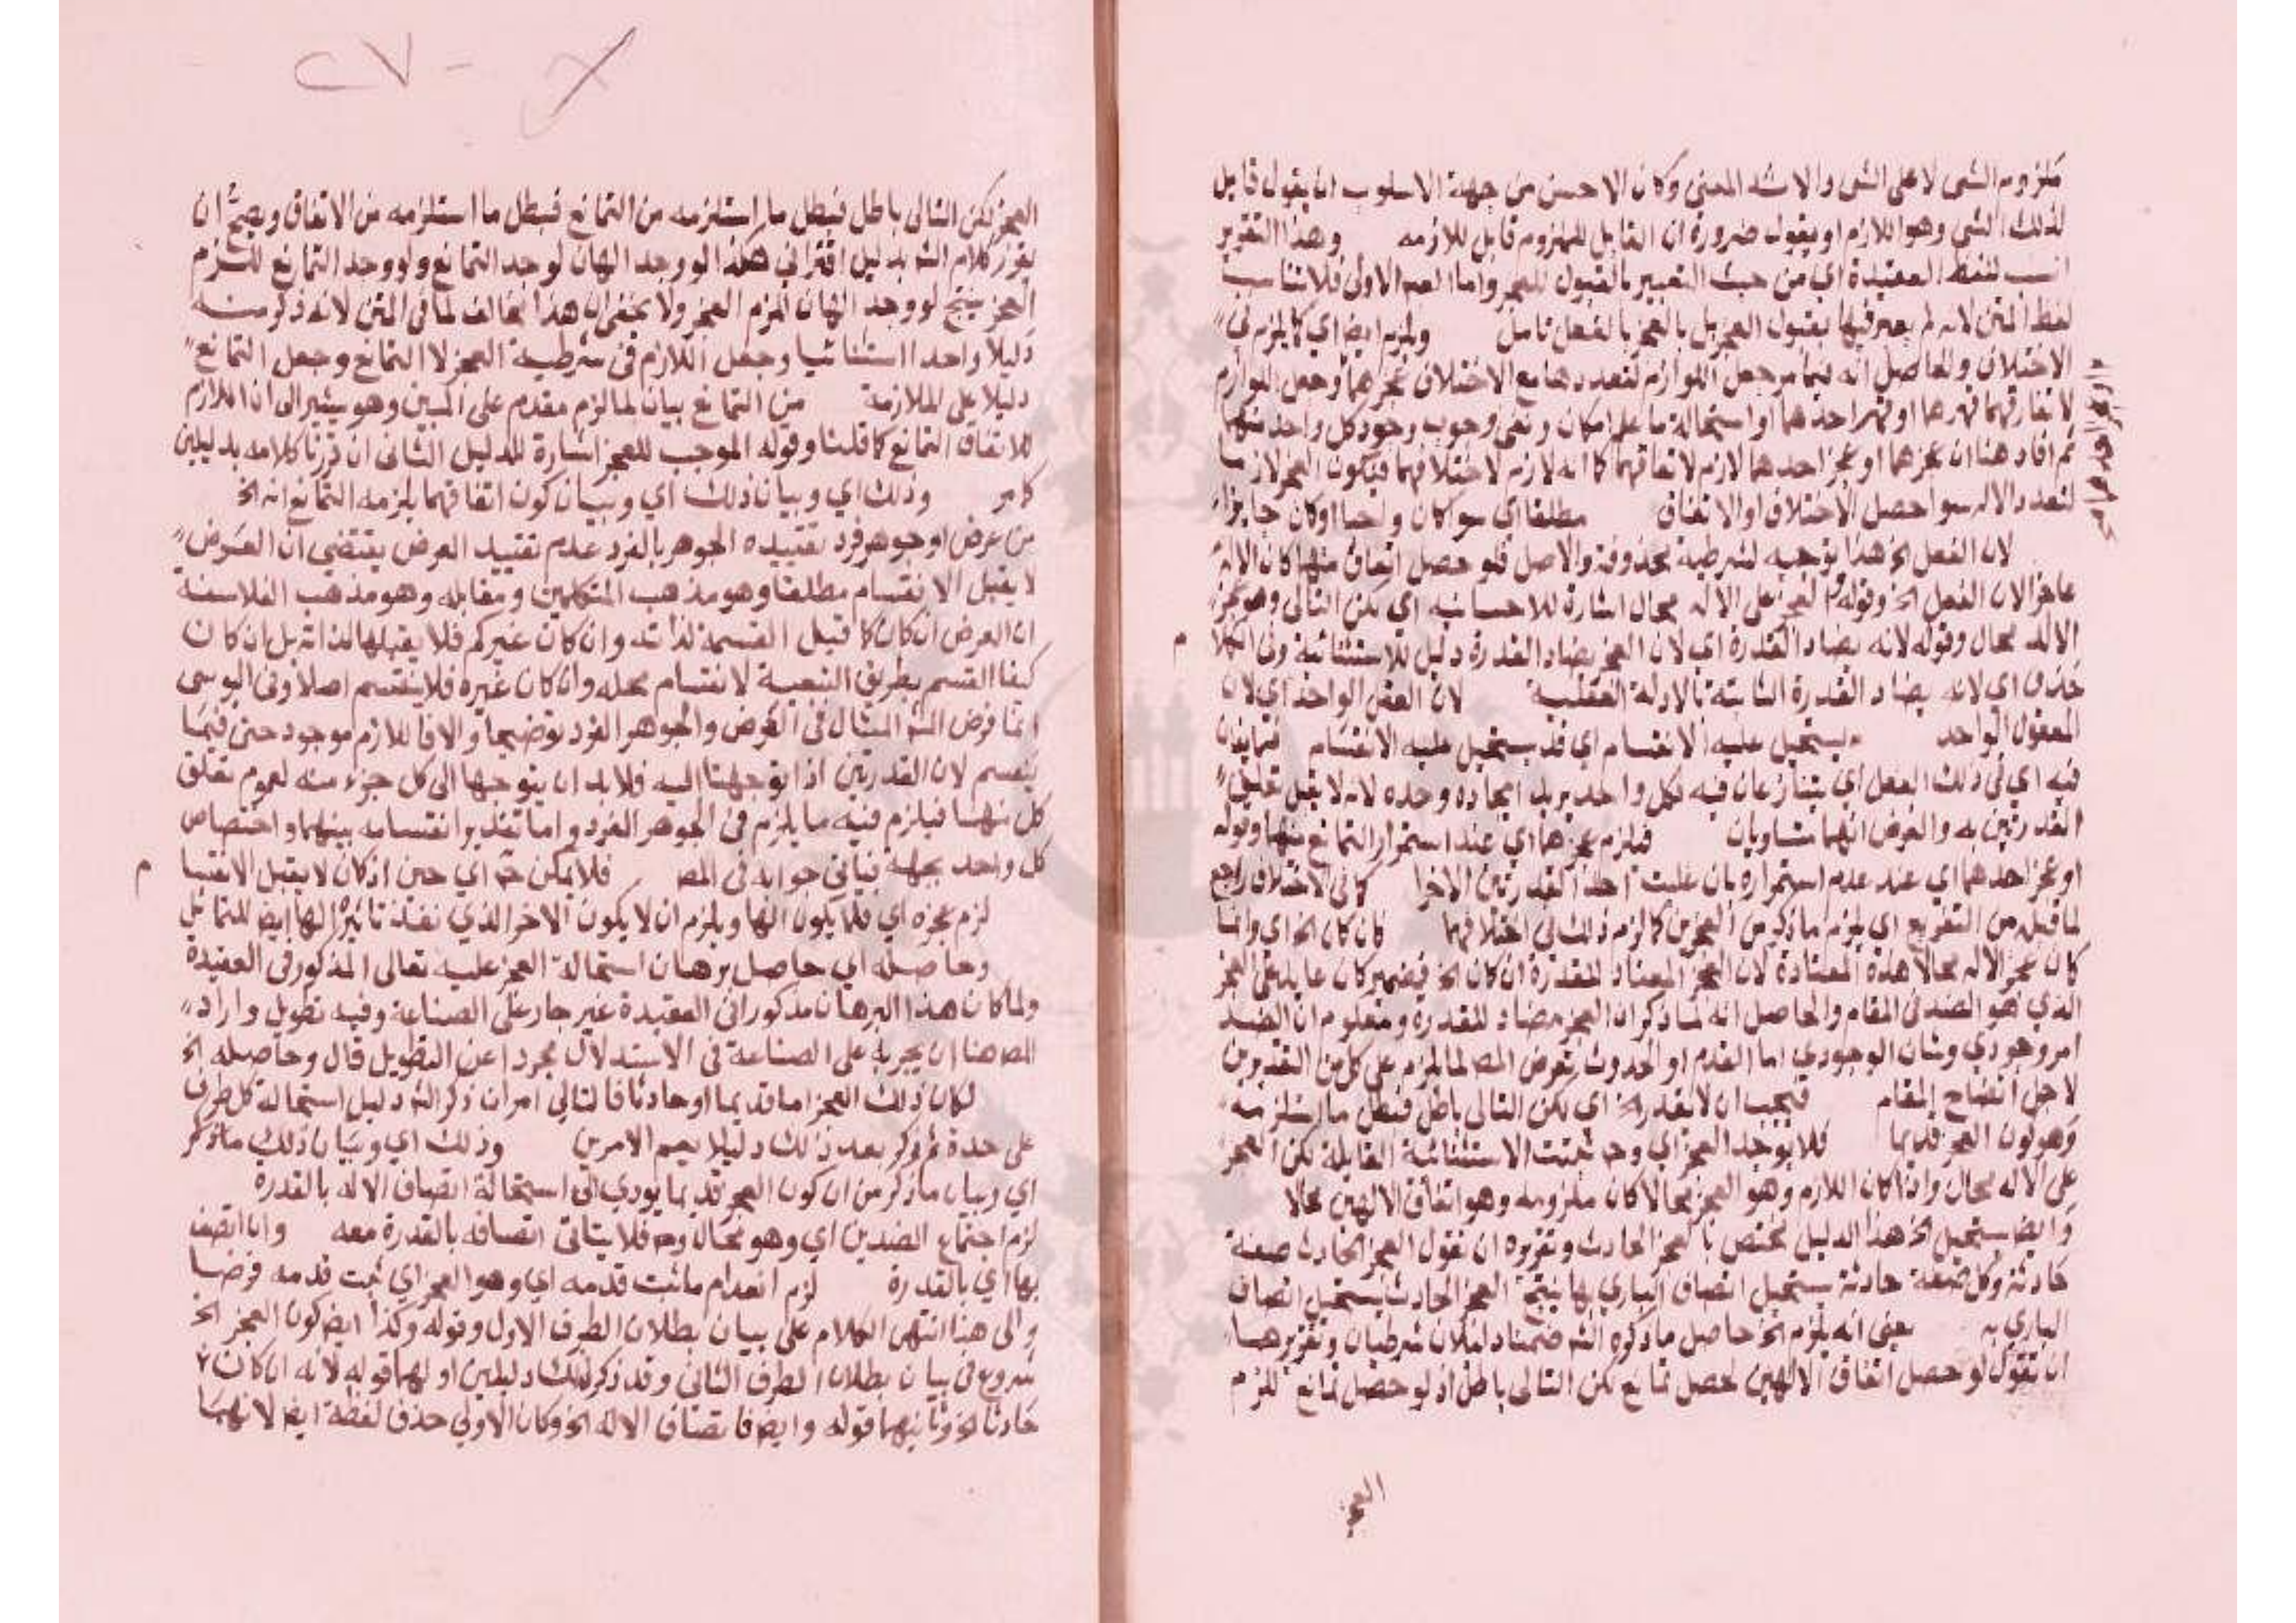 ملزوم الشى لا على الشى والا شه المعنى وكان الاحسن من جهة الاسلوب ان يقول قابل
لذلك الشى وهو اللازم او يقول ضرورة ان القابل للملزوم قابل للازمه وهذا التقرير
انسب لفظ العقيدة اي من حيث التعبير بالقبول للعجز واما الاولى فلا تناسب
لفظ المتن لانه لم يعبر فيها بقبول العجز بل بالعجز بالفعل تامل ويلزم ايضا اي كما يلزم فى
الاختلاف والحاصل انه فيما مر جعل الموازم لتعددهما مع الاختلاف عجزهما وجعل الموازم
لاتفاقهما قهرهما او قهر احدهما او استحالة ما علم امكان ونفى وجوب وجود كل واحد منهما
ثم افاد هنا ان عجزهما او عجز احدهما لازم لاتفاقهما كما انه لازم لاختلافهما فيكون العجز لازما
لتعدد الاله سوا حصل الاختلاف او الاتفاق مطلقا اي سوا كان واجبا او كان جايزا
لان الفعل الخ هذا توجيه لشرطية محذوفة والاصل فلو حصل اتفاق منهما كان الاله
عاجزا لان الفعل الخ وقوله والعجز على الاله محال اشارة للاستثنائية اي لكن التالى وهو عجز
الاله محال وقوله لانه يضاد القدرة اي لان العجز يضاد القدرة دليل للاستثنائية وفى الكلام
حذف اي لانه يضاد القدرة الثابتة بالادلة العقلية لان الفعل الواحد اي لان
المعقول الواحد يستحيل عليه الانقسام اي قد يستحيل عليه الانقسام فتمانعان
فيه اي فى ذلك الفعل اي يتنازعان فيه لكل واحد يريد ايجاده وحده لانه لا يقبل تعلق
القدرتين به والفرض انهما متساويان فيلزم عجزهما اي عند استمرار التمانع منهما وقوله
او عجز احدهما اي عند عدم استمراره بان غلبت احد القدرتين الاخرا كما فى الاختلاف راجع
لما قبل من التفريع اي يلزم ما ذكر من العجزين كما لزم ذلك فى اختلافهما كان كان الخ اي وانما
كان عجز الاله محالا هذه المضادة لان العجز المضاد للقدرة ان كان الخ فضمير كان عايد على العجز
الذي هو الضد فى المقام والحاصل انه لما ذكر ان العجز مضاد للقدرة ومعلوم ان الضد
امر وجودي وشان الوجودي اما القدم او الحدوث تعرض المص لما يلزم على كل من التقديرين
لاجل اتضاح المقام فيجب ان لا يقدر الخ اي لكن التالى باطل فبطل ما استلزمه
وهو كون العجز قديما فلا يوجد العجز اي وح ثبتت الاستثنائية القايلة لكن العجز
على الاله محال واذا كان اللازم وهو العجز محالا كان ملزومه وهو اتفاق الالهين محالا
وايضا يستحيل الخ هذا الدليل مختص بالعجز الحادث وتقريره ان تقول العجز الحادث صفة
حادثة وكل صفة حادثة يستحيل اتصاف الباري بها ينتج العجز الحادث يستحيل اتصاف
الباري به يعنى انه يلزم الخ حاصل ما ذكره الش ضمنا دليلان شرطيان وتقريرهما
ان تقول لو حصل اتفاق الالهين لحصل تمانع لكن التالى باطل اذ لو حصل تمانع للزم
العجز
العجز لكن التالى باطل فبطل ما استلزمه من التمانع فبطل ما استلزمه من الاتفاق ويصح ان
يقرر كلام الش بدليل اقترانى هكذا لو وجد الهان لوجد التمانع ولو وجد التمانع للزم
العجز ينتج لو وجد الهان لزم العجز ولا يخفى ان هذا مخالف لما فى المتن لانه ذكر منه
دليلا واحدا استثنائيا وجعل اللازم فى شرطية العجز لا التمانع وجعل التمانع
دليلا على الملازمة من التمانع بيان لما لزم مقدم على المبين وهو يشير الى ان اللازم
للاتفاق التمانع كما قلنا وقوله الموجب للعجز اشارة للدليل الثانى ان قررنا كلامه بدليلين
كامر وذلك اي وبيان ذلك اي وبيان كون اتفاقهما يلزمه التمانع انه الخ
من عرض او جوهر فرد تقييده الجوهر بالفرد عدم تقييد العرض يقتضى ان العرض
لا يقبل الانقسام مطلقا وهو مذهب المتكلمين ومقابله وهو مذهب الفلاسفة
ان العرض ان كان كما قبل القسمة لذاته وان كان غيركم فلا يقبلها لذاته بل ان كان
كيفا انقسم بطريق التبعية لانقسام محله وان كان غيره فلا ينقسم اصلا وفى اليوسى
انما فرض الش المثال فى العرض والجوهر الفرد توضيحا والا فاللازم موجود حتى فيما
ينقسم لان القدرتين اذا توجهتا اليه فلا بد ان يتوجها الى كل جزء منه لعموم تعلق
كل منهما فيلزم فيه ما يلزم فى الجوهر الفرد واما تقدير انقسامه بينهما واختصاص
كل واحد بجهة فيأتى جوابه فى المص فلا يمكن ح اي حين اذ كان لا يقبل الانقسا
لزم عجزه اي فلا يكون الها ويلزم ان لا يكون الاخر الذي نفذ تاثيره الها ايضا للتماثل
وحاصله اي حاصل برهان استحالة العجز عليه تعالى المذكور فى العقيدة
ولما كان هذا البرهان مذكورا فى العقيدة غير جار على الصناعة وفيه تطويل واراد
المص هنا ان يجريه على الصناعة فى الاستدلال مجردا عن التطويل قال وحاصله الخ
لكان ذلك العجز اما قديما او حادثا فالتالى امران ذكر الش دليل استحالة كل طرف
على حدة ثم ذكر بعد ذلك دليلا يعم الامرين وذلك اي وبيان ذلك ما ذكر
اي وبيان ما ذكر من ان كون العجز قديما يودي الى استحالة اتصاف الاله بالقدرة
لزم اجتماع الضدين اي وهو محال وح فلا يتاتى اتصافه بالقدرة معه وان اتصف
بها اي بالقدرة لزم انعدام ما ثبت قدمه اي وهو العجز اي ثبت قدمه فرضا
والى هنا انتهى الكلام على بيان بطلان الطرف الاول وقوله وكذا ايضا كون العجز الخ
شروع فى بيان بطلان الطرف الثانى وقد ذكر لذلك دليلين اولهما قوله لانه ان كان
حادثا الخ وثانيهما قوله وايضا فاتصاف الاله الخ وكان الاولى حذف لفظة ايضا لانهما